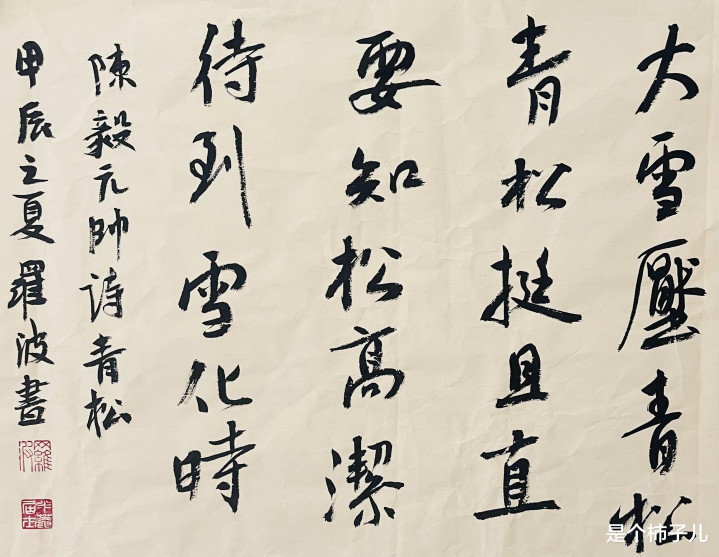 大雪壓青松
青松挺且直
要知松高潔
待到雪化時
陳毅元帅诗青松
甲辰之夏羅波書
是个柿子儿